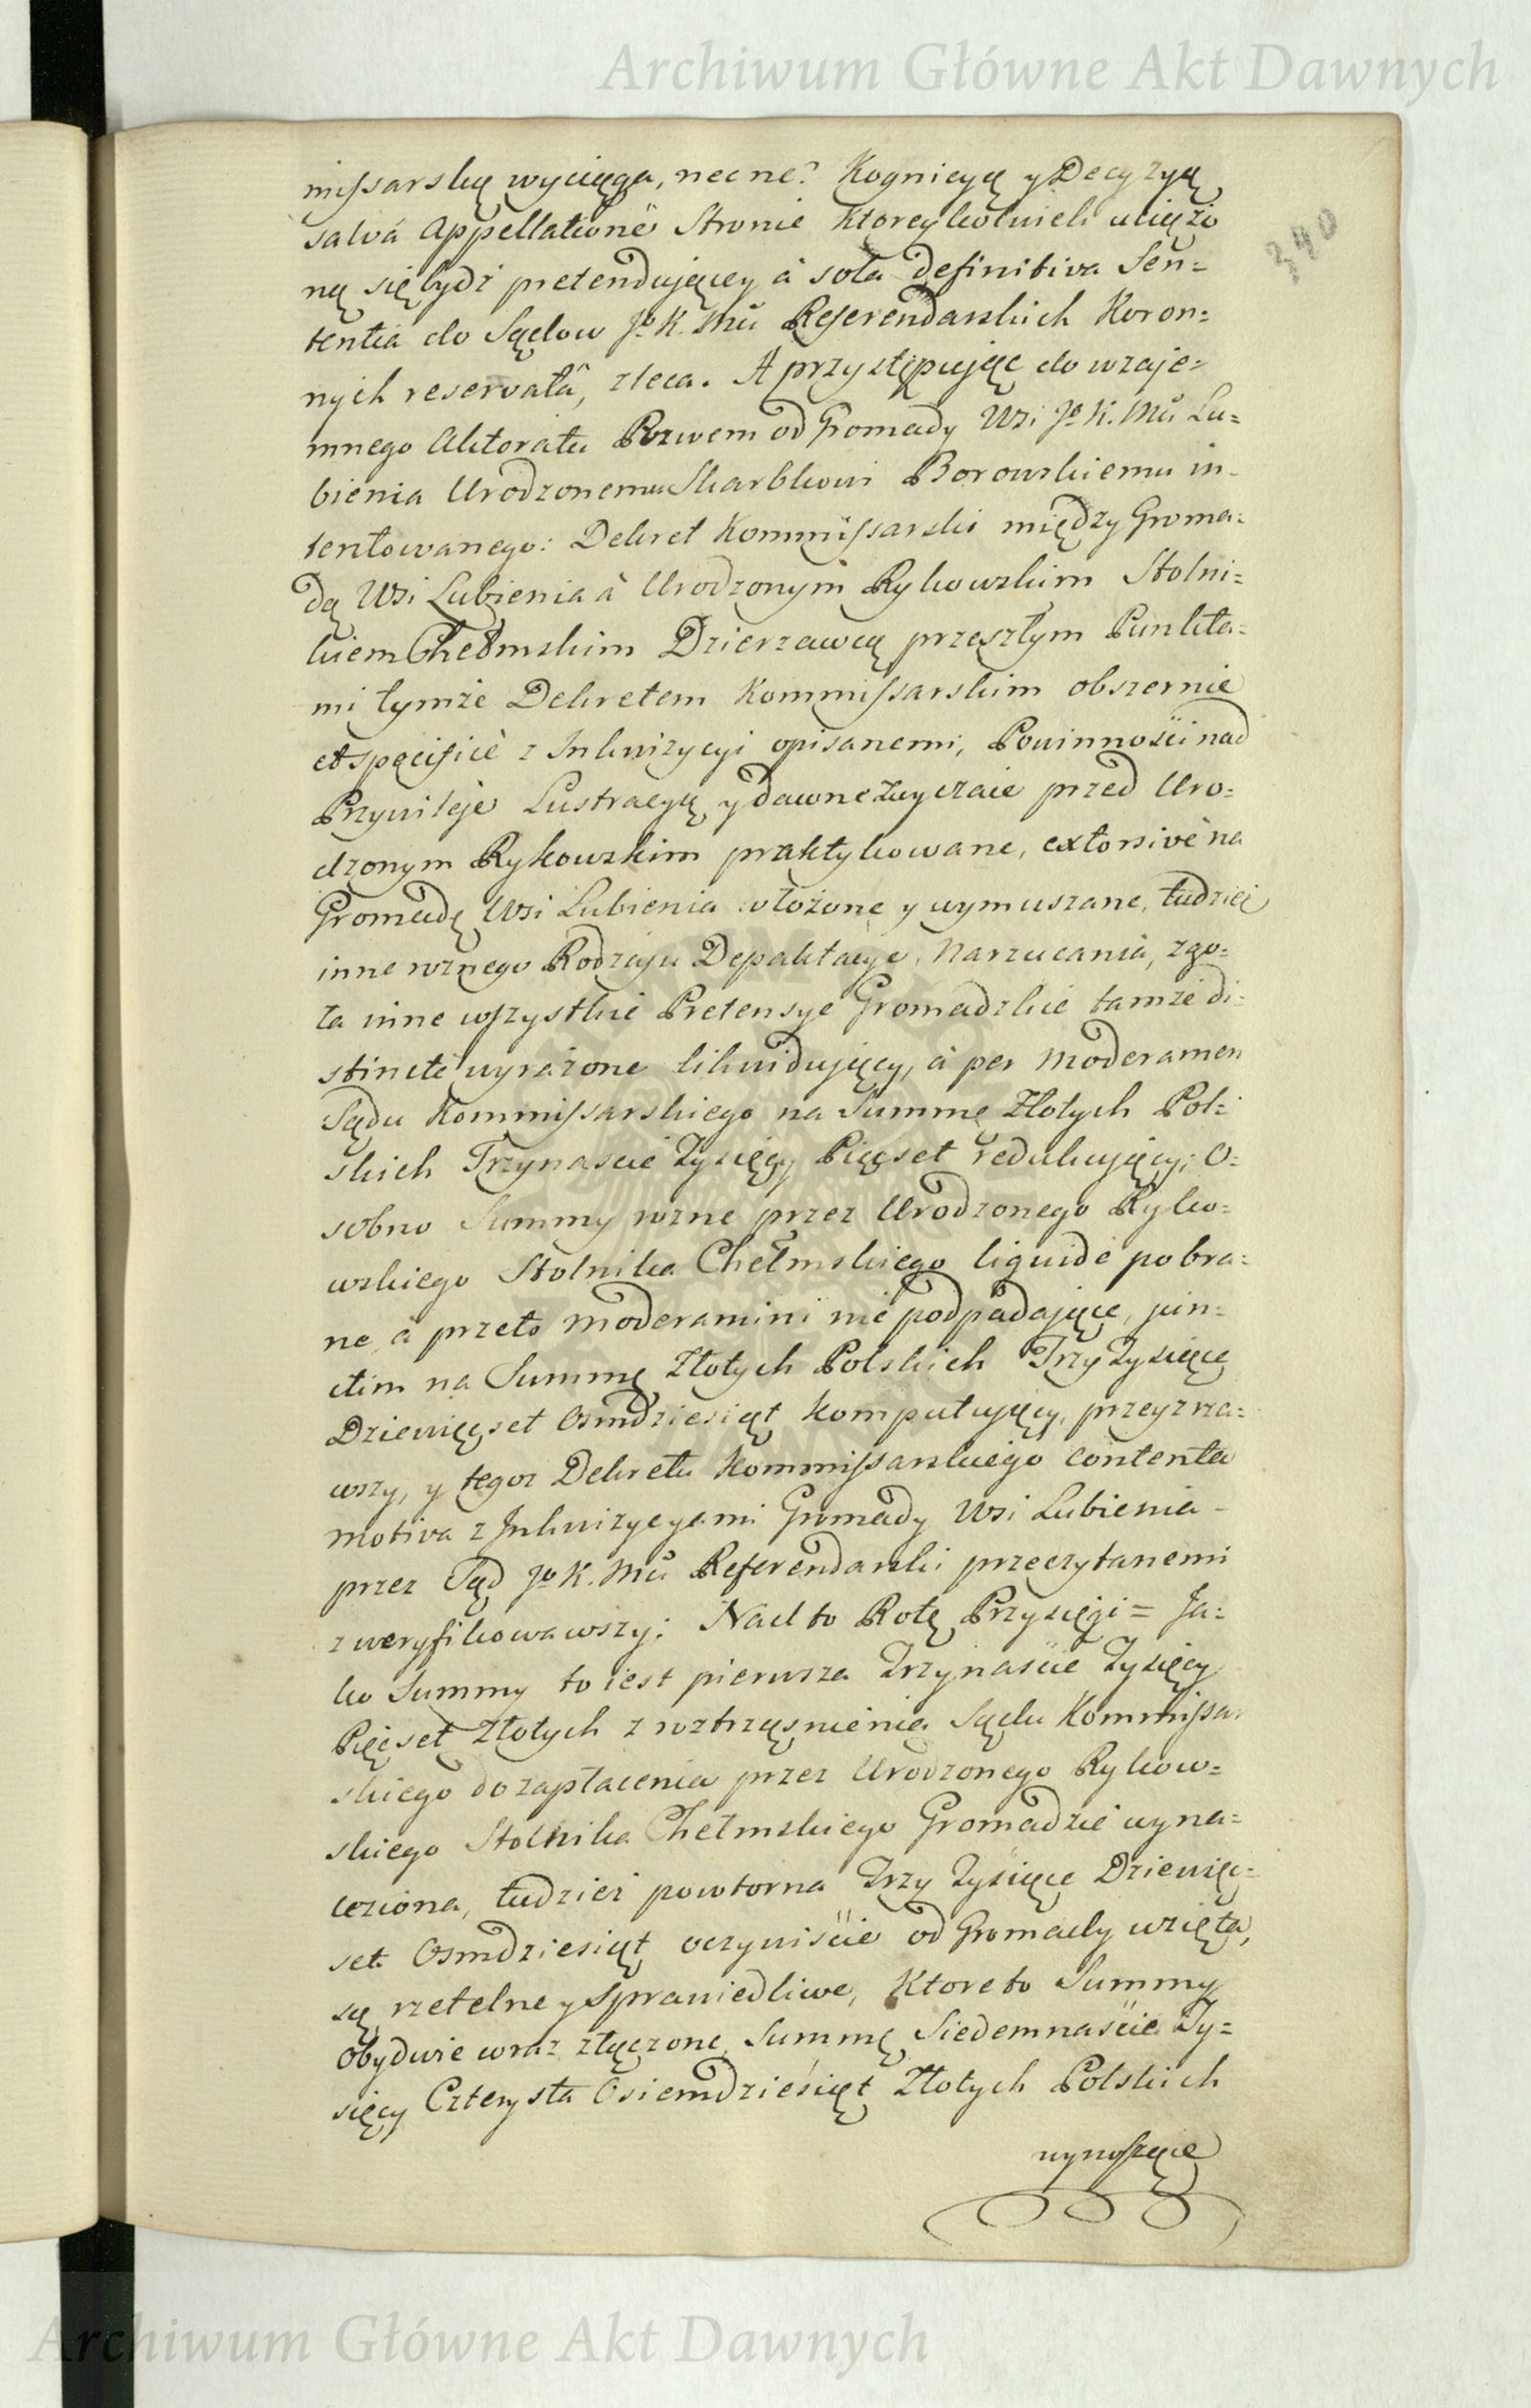 Archiwum Główne Akt Dawnych
340
missarską wyciąga, nec ne? Kognicyą y Decyzyą
salvâ Appellatione Stronie ktoreykolwiek uciążo
ną się bydź pretendującey à sola definitiva Sen=
tentia do Sądow Jo K. Mci Referendarskich Koron=
nych reservatâ, zleca. A przystępując do wzaje=
mnego Aktoratu Pozwem od Gromady Wsi Jo K. Mci Lu=
bienia Urodzonemu Skarbkowi Borowskiemu in=
tentowanego: Dekret Kommissarski między Groma=
dą Wsi Lubienia à Urodzonym Rykowskim Stolni=
kiem Chełmskim Dzierzawcą przeszłym Punkta=
mi tymże Dekretem Kommissarskim obszernie
et specificè z Inkwizycyi opisanemi, Powinności nad
Przywileje Lustracyą y dawne zwyczaie przed Uro=
dzonym Rykowskim praktykowane, extorsivè na
Gromadę Wsi Lubienia włożone y wymuszane, tudzież
inne roznego Rodzaju Depaktacye, Narzucania, zgo=
ła inne wszystkie Pretensye Gromadzkie tamże di=
stinctè wyrażone likwidujący, à per moderamen
Sądu Kommissarskiego na Summę Złotych Pol=
skich Trzynascie Tysięcy Pięcset redukujący; O=
sobno Summy rozne przez Urodzonego Ryko=
wskiego Stolnika Chełmskiego liquidè pobra=
ne, à przeto moderamini nie podpadające, jun=
ctim na Summę Złotych Polskich Trzy Tysiące
Dziewięcset Osmdziesiąt komputujący, przeyrza=
wszy, y tegoz Dekretu Kommissarskiego contenta
motiva z Inkwizycyami Gromady Wsi Lubienia
przez Sąd Jo K. Mci Referendarski przeczytanemi
zweryfikowawszy: Nadto Rotę Przysięgi = Ja=
ko Summy to iest pierwsza Trzynaście Tysięcy
Pięcset Złotych z roztrząśnienia Sądu Kommissar
skiego do zapłacenia przez Urodzonego Rykow=
skiego Stolnika Chełmskiego Gromadzie wyna=
leziona, tudzież powtorna Trzy Tysiące Dziewięc=
set Osmdziesiąt oczywiście od Gromady wzięta,
są rzetelne y sprawiedliwe, ktore to Summy
obydwie wraz złączone Summę Siedemnaście Ty=
sięcy Czterysta Osiemdziesiąt Złotych Polskich
wynoszące
Archiwum Główne Akt Dawnych